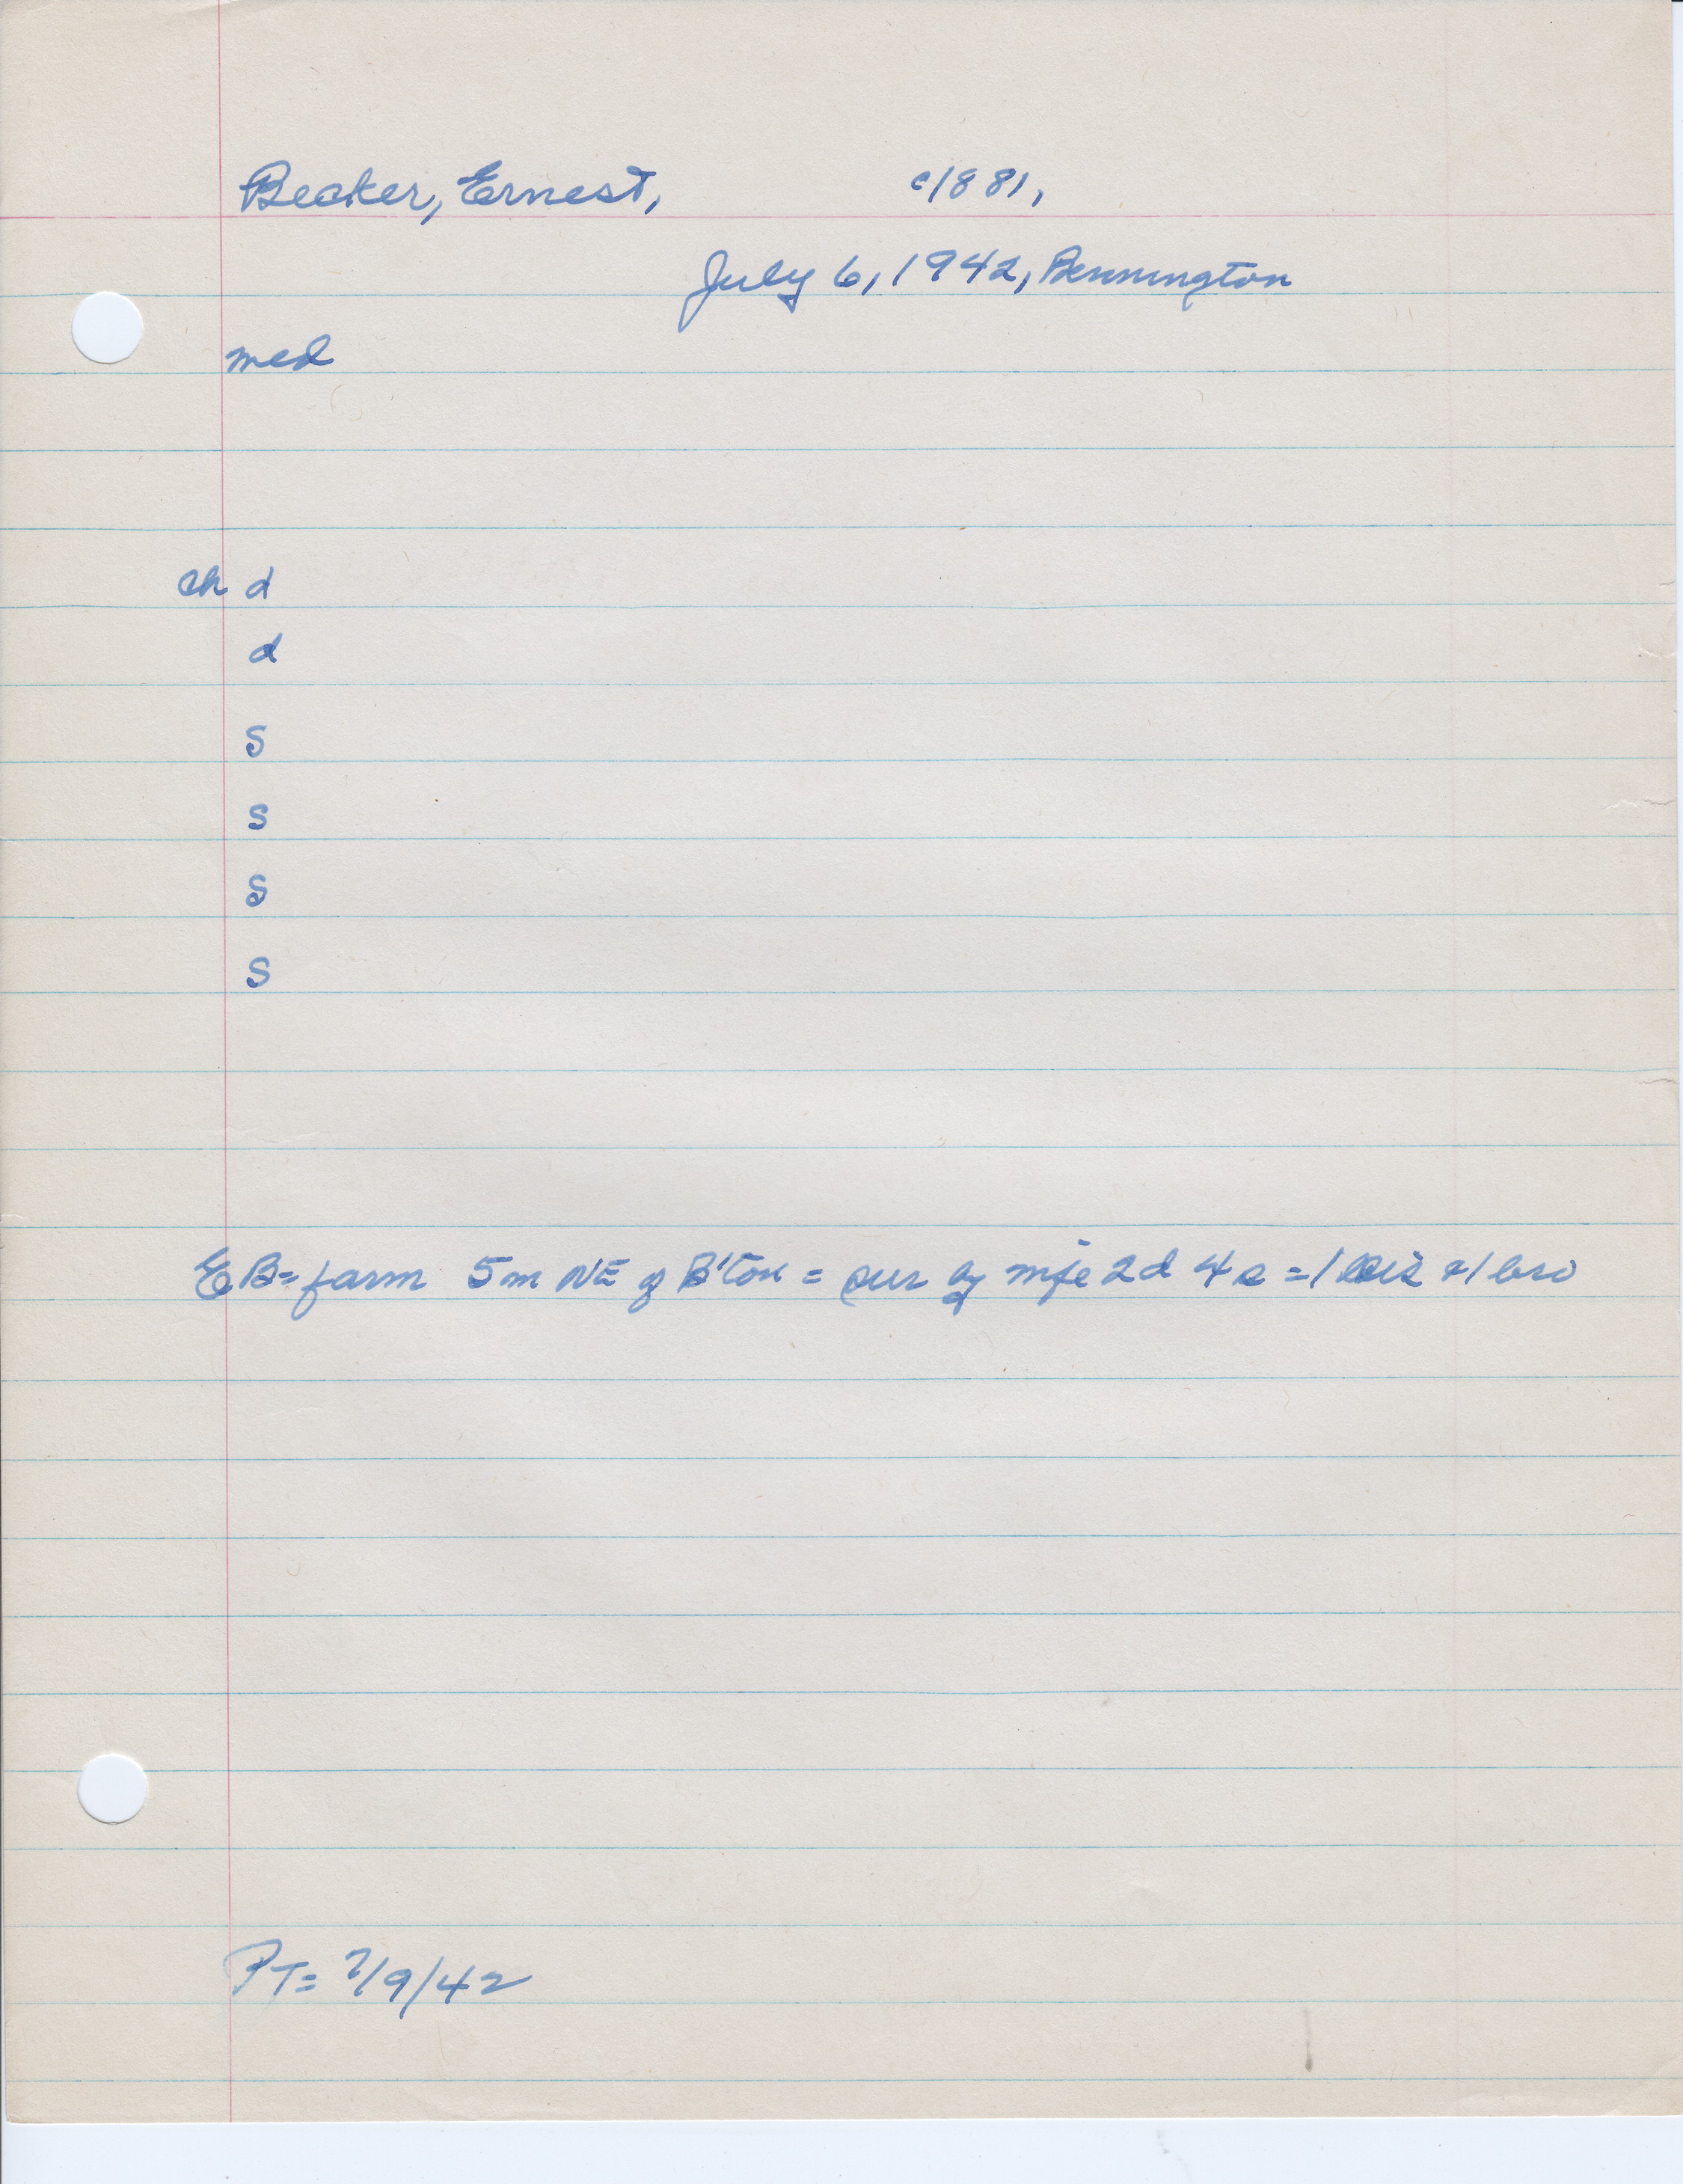 Becker, Ernest, c1881,
July 6, 1942, Bennington
med
ch d
d
s
s
s
s
EB= farm 5m NE of B'ton = sur by wife 2d 4s = 1 sis & 1 bro
PT= 7/9/42